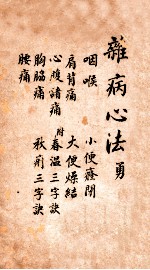 雜病心法 勇
咽喉　小便癃閉
肩背痛　大便燥結
心腹諸痛　附春温三字訣
胸脇痛　秋痢三字訣
腰痛